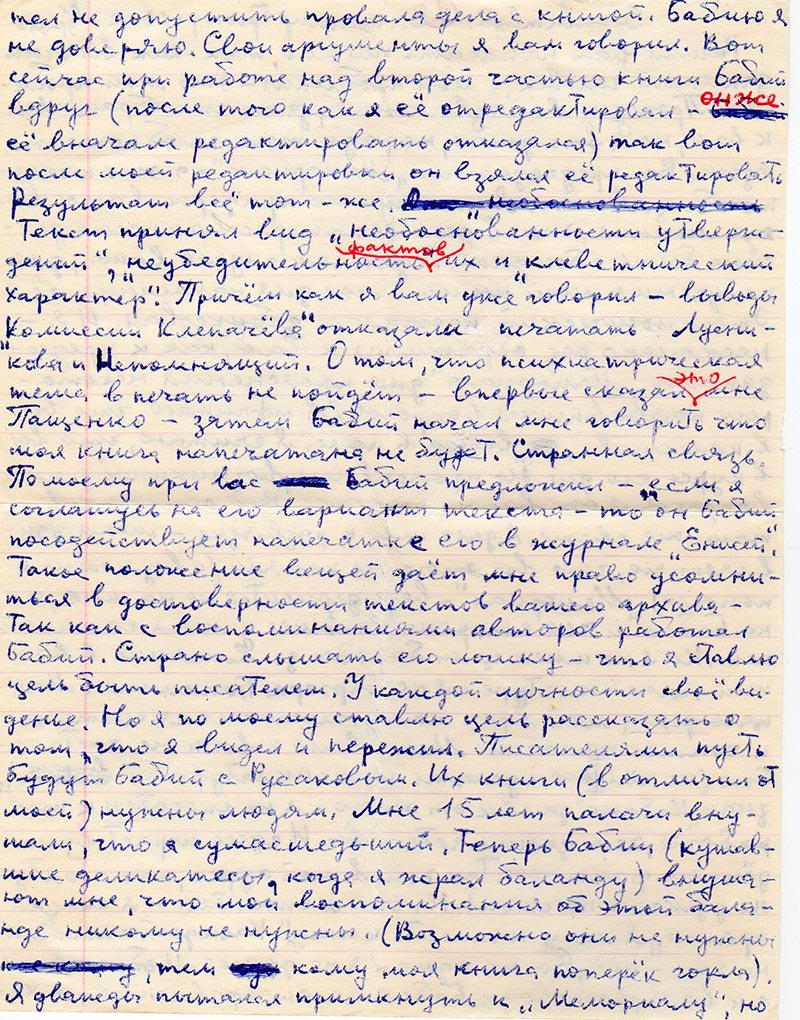 тел не допустить провала дела с книгой. Бабию я
не доверяю. Свои аргументы я вам говорил. Вот
сейчас при работе над второй частью книги Бабий
вдруг (после того как я её отредактировал – он же
её вначале редактировать отказался) так вот
после моей редактировки он взялся её редактировать
Результат всё тот-же. Она необоснованность
Текст принял вид „необоснованности утверж-
дений", „неубедительность фактов их и „клеветнический
характер". Причём как я вам уже говорил – выводы
"Комиссии Клепачёва" отказали печатать Лусни-
кова и Непомнящий. О том, что психиатрическая
тема в печать не пойдёт – впервые сказал это мне
Пащенко – зятем Бабий начал мне говорить что
моя книга напечатана не будет. Странная связь.
Помоему при вас Бабий предложил – если я
соглашусь на его вариант текста – то "он Бабий
посодействует напечатке его в журнале „Енисей".
Такое положение вещей даёт мне право усомни-
ться в достоверности текстов вашего архива –
Так как с воспоминаниями авторов работал
Бабий. Страно слышать его логику – что я ставлю
цель быть писателем. У каждой личности своё ви-
денье. Но я по моему ставлю цель рассказать о
том, что я видел и пережил. Писателями пусть
будут Бабий с Русаковым. Их книги (в отличии от
моей) нужны людям. Мне 15 лет палачи вну-
шали, что я сумасшедьший. Теперь Бабии (кушав-
шие деликатесы, когда я жрал баланду) внуша-
ют мне, что мои воспоминания об этой балан-
нде никому не нужны. (Возможно они не нужны
, тем кому моя книга поперёк горла).
Я дважды пытался примкнуть к „Мемориалу", но